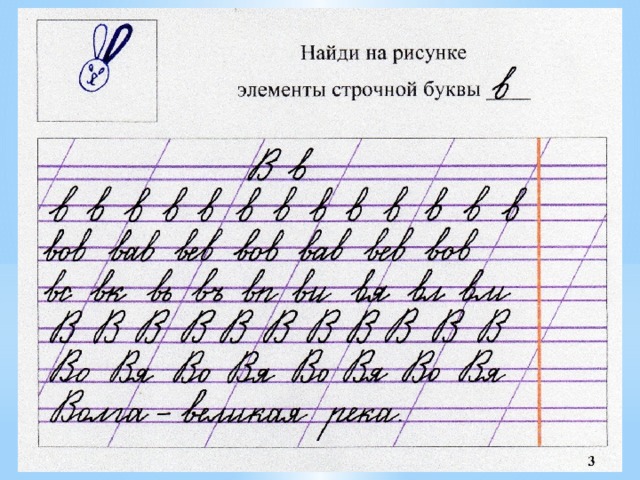 Найди на рисунке
элементы строчной буквы в
В в
в в в в в в в в в в в в в
вов вав вев вов вав вев вов
вс вк вь въ вп ви вя вл вм
В В В В В В В В В В В
Во Вя Во Вя Во Вя Во Вя
Волга – великая река.
3